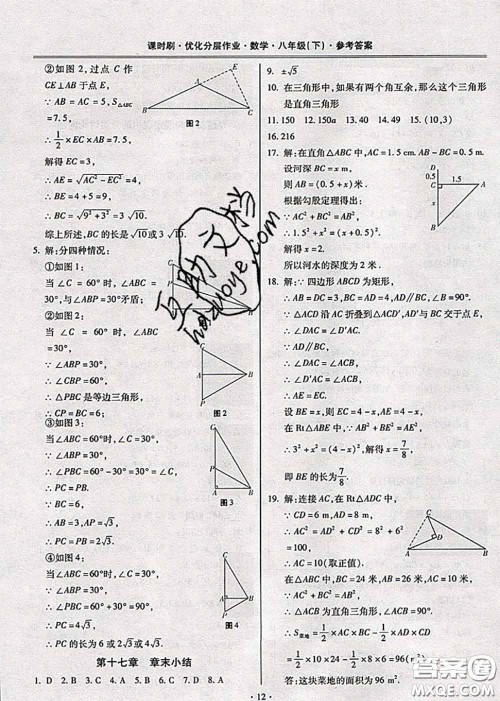 课时刷·优化分层作业·数学·八年级(下)·参考答案
②如图2,过点C作
CE⊥AB于点E,
∵AB=AC=5,S△ABC
=7.5,
∴1/2×EC×AB=7.5,
解得EC=3,
∴AE=√(AC²-EC²)=4,
∴BE=4+5=9,
∴BC=√(9²+3²)=3√10.
综上所述,BC的长是√10或3√10.
5. 解:分四种情况:
①如图1:
当∠C=60°时,∠ABC=
30°,与∠ABP=30°矛盾;
②如图2:
当∠C=60°时,∠ABC
=30°,
∵∠ABP=30°,
∴∠CBP=60°,
∴△PBC是等边三角形,
∴CP=BC=6;
③如图3:
当∠ABC=60°时,∠C=30°,
∵∠ABP=30°,
∴∠PBC=60°-30°=30°=∠C,
∴PC=PB.
∵BC=6,
∴AB=3,AP=√3,
∴PC=PB=2√3.
④如图4:
当∠ABC=60°时,∠C=30°,
∵∠ABP=30°,
∴∠PBC=60°+30°=90°,
∴PC=4√3.
∴PC的长为6或2√3或4√3.
第十七章 章末小结
1. D 2. B 3. C 4. C 5. B 6. D 7. D 8. A
A
B
C
E
图2
A
B
C
P
图2
C
P
A
B
图3
C
A
B
P
图4
9. ±√5
10. 在三角形中,如果有两个角互余,那么这个三角形
是直角三角形
11. 150 12. 150a 13. 20 14. 49 15. (10,3)
16. 216
17. 解:在直角△ABC中,AC=1.5 cm. AB-BC=0.5 m.
设河深BC=x m,
则AB=(x+0.5) m.
根据勾股定理得出:
∵AC²+BC²=AB²,
∴1.5²+x²=(x+0.5)².
解得x=2.
所以河水的深度为2米.
18. 解:∵四边形ABCD为矩形,
∴AB=DC=3,BC=AD=4,AD∥BC,∠B=90°.
∵△ACD沿AC折叠到△ACD′,AD′与BC交于点E,
∴∠DAC=∠D′AC.
∵AD∥BC,
∴∠DAC=∠ACB,
∴∠D′AC=∠ACE,
∴AE=EC.
设BE=x,则EC=4-x,AE=4-x,
在Rt△ABE中,∵AB²+BE²=AE²,
∴3²+x²=(4-x)²,解得x=7/8,
即BE的长为7/8.
19. 解:连接AC,在Rt△ADC中,
∵CD=6 m,AD=8 m,
∴AC²=AD²+CD²=8²+6²
=100,
∴AC=10(取正值).
在△ABC中,BC=24米,AB=26米,AC=10米,
∴AC²+BC²=AB²,
∴△ACB为直角三角形,
∴S菜地=1/2×AC×BC-1/2×AD×CD
=1/2×10×24-1/2×8×6=96(m²).
答:这块菜地的面积为96 m².
D
0.5
C
1.5
A
B
C
D
A
B
· 12 ·
互助文档
hdzuoye.com
答案圈
MXQE.COM